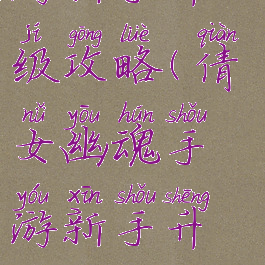 jí gōng lüè qiàn
级攻略(倩
nǚ yōu hún shǒu
女幽魂手
yóu xīn shǒu shēng
游新手升